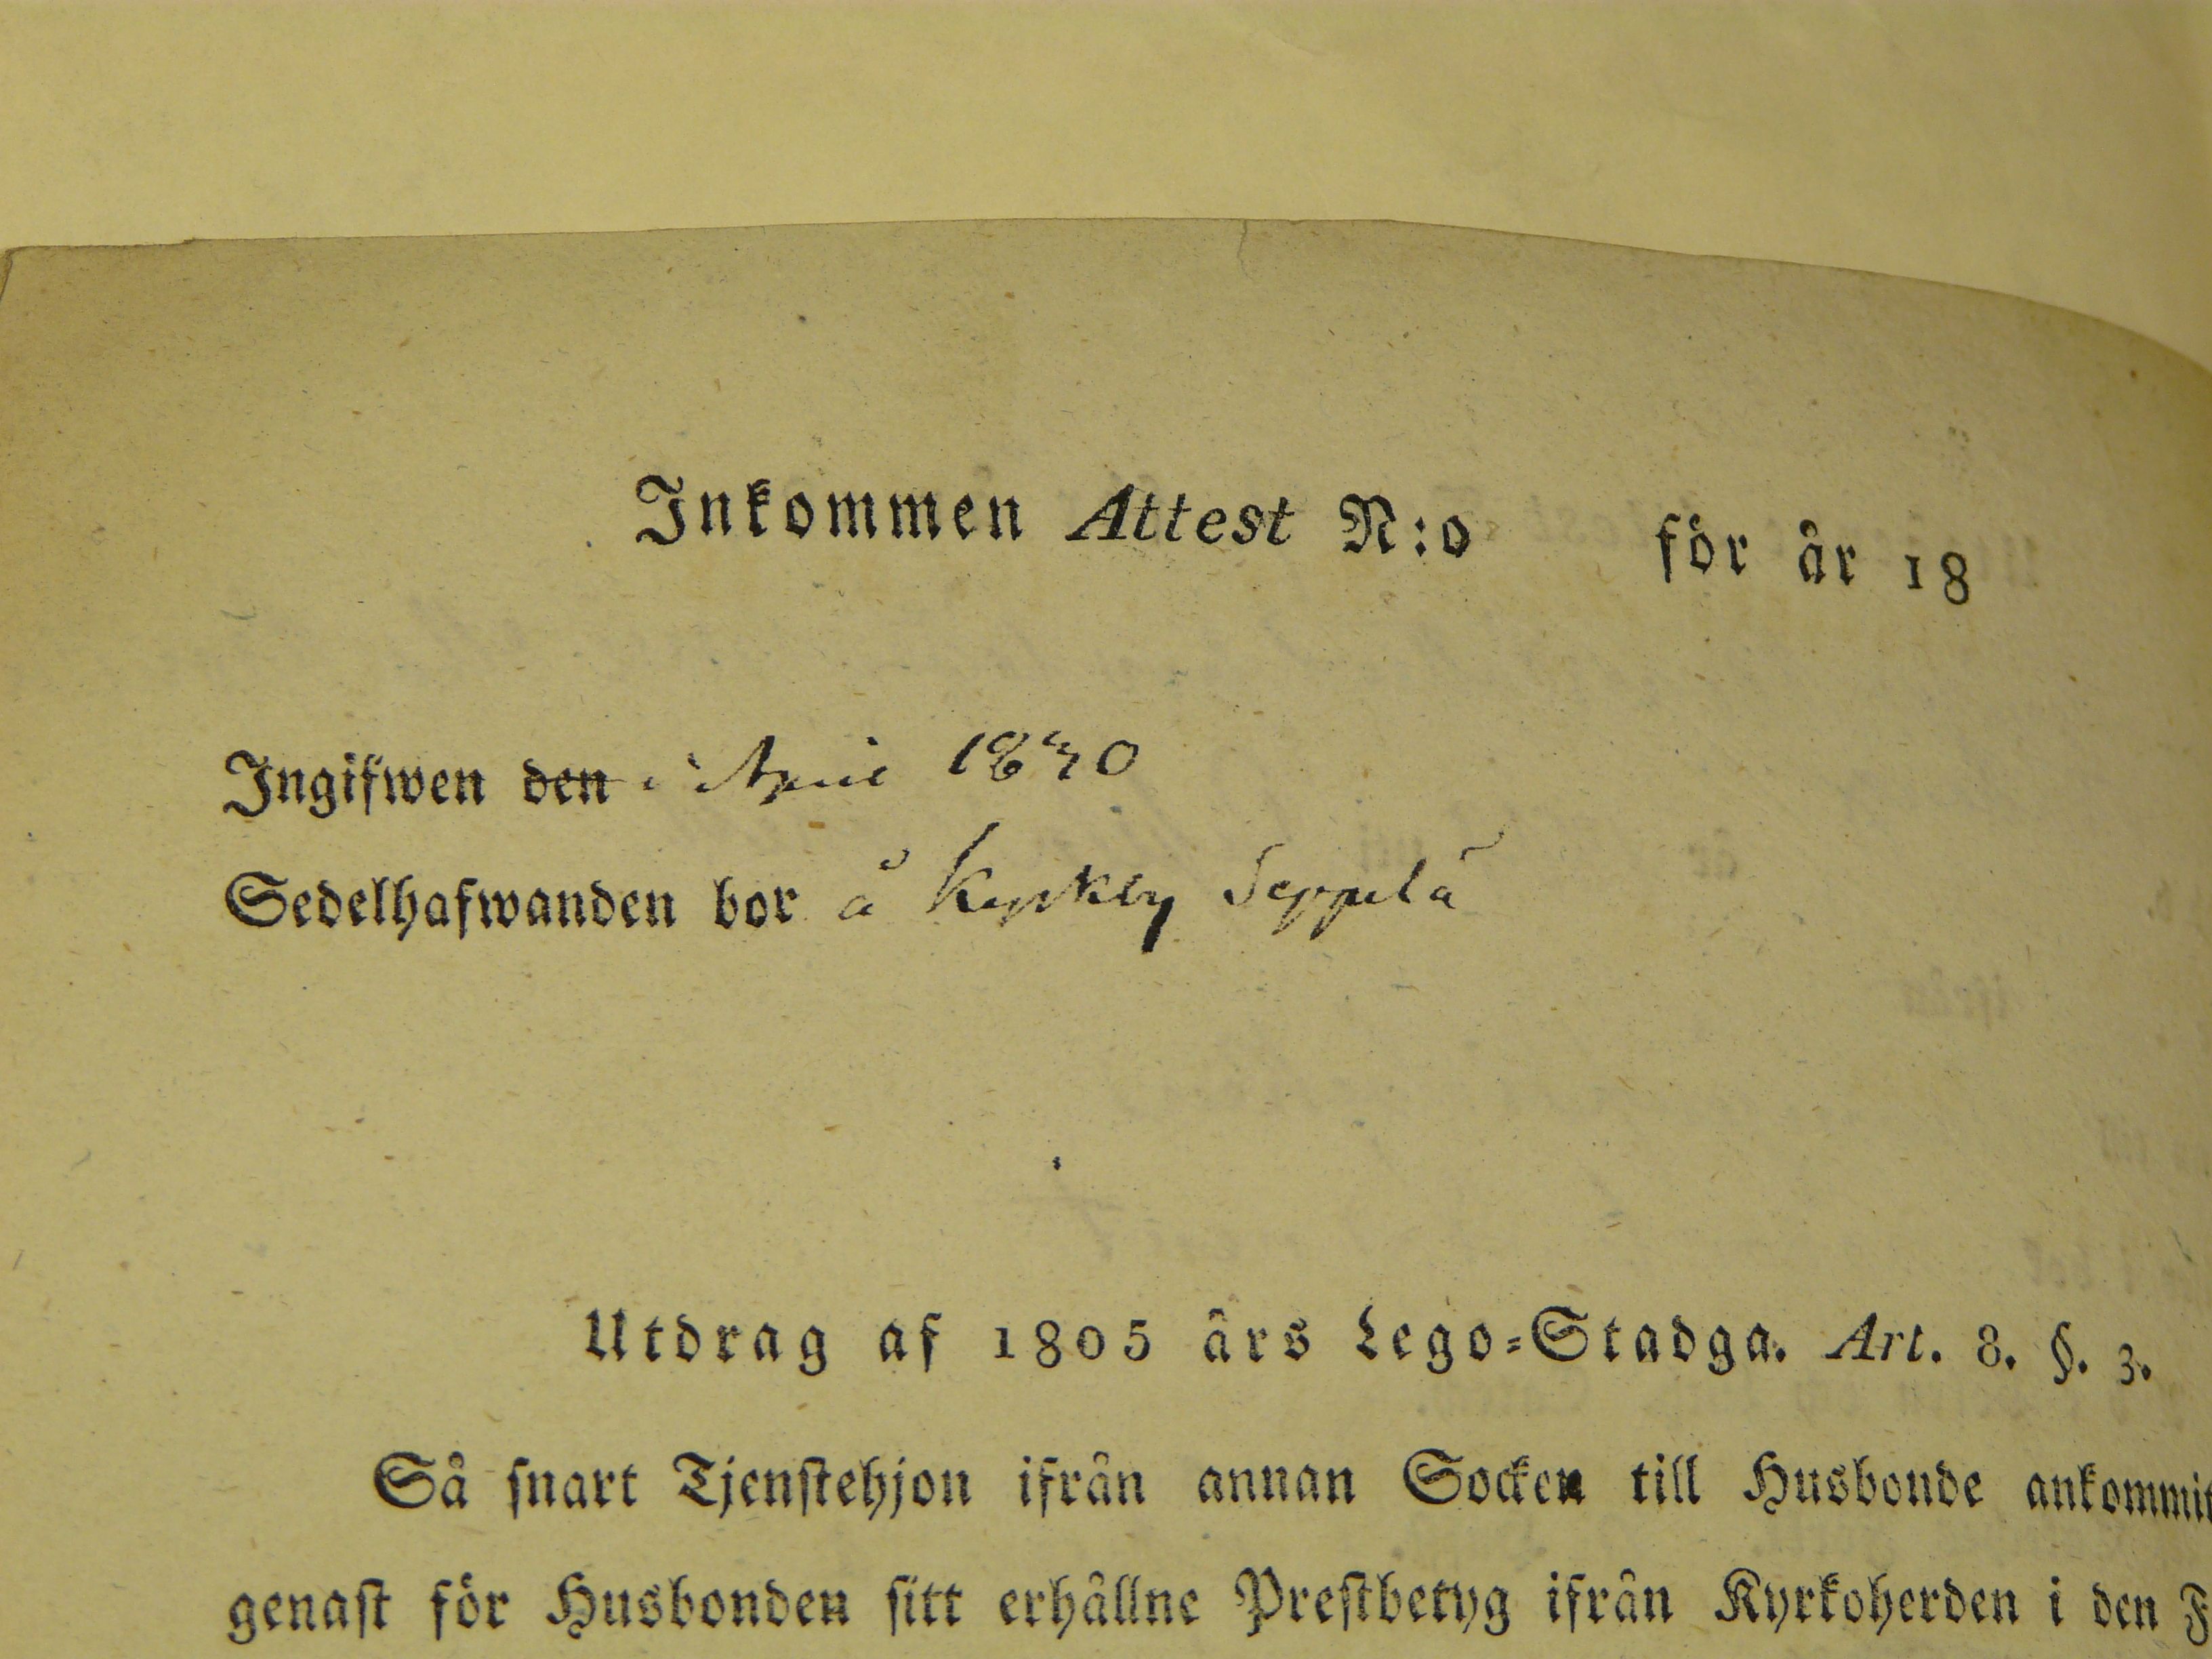 Inkommen Attest N:o för år 18
Ingifwen den i April 1830
Sedelhafwanden bor å Kyrkby Seppelä
Utdrag af 1805 års Lego-Stadga. Art. 8. §. 3.
Så snart Tjenstehjon ifrån annan Socken till Husbonde ankommit
genast för Husbonden sitt erhållne Prestbetyg ifrån Kyrkoherden i den F